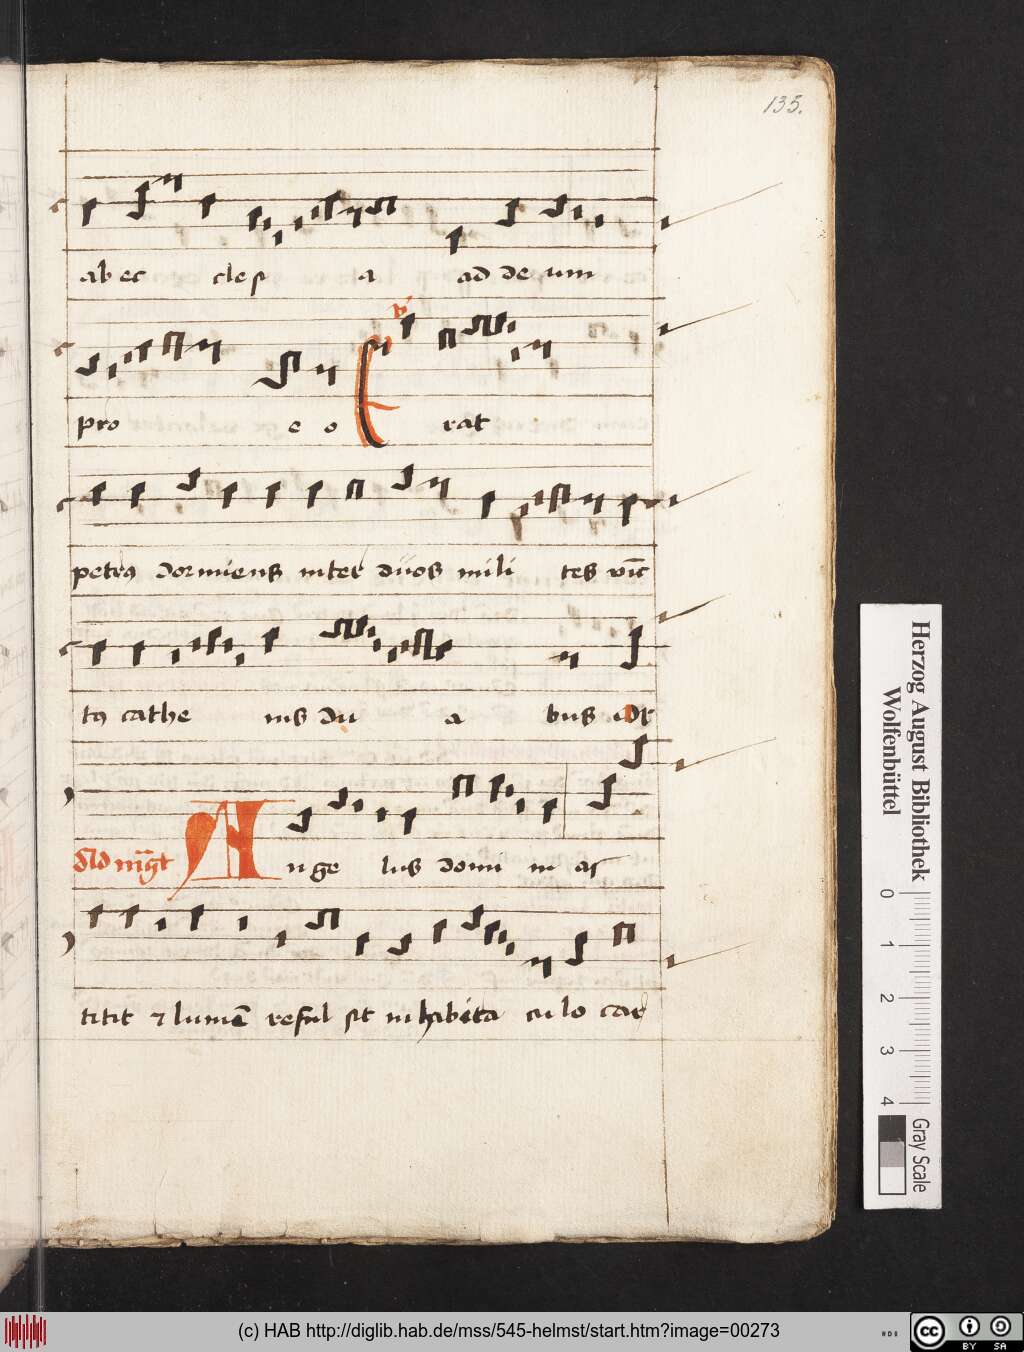 135.
ab ec cle si a ad de um
pro e o E rat
petrꝯ dormiens inter duos mili tes vīc
tꝯ cathe nis du a bus
A n ge lus domi ni as
titit ⁊ lumē reful sit in habita cu lo car
Herzog August Bibliothek
Wolfenbüttel
0 1 2 3 4
Gray Scale
(c) HAB http://diglib.hab.de/mss/545-helmst/start.htm?image=00273
cc BY SA